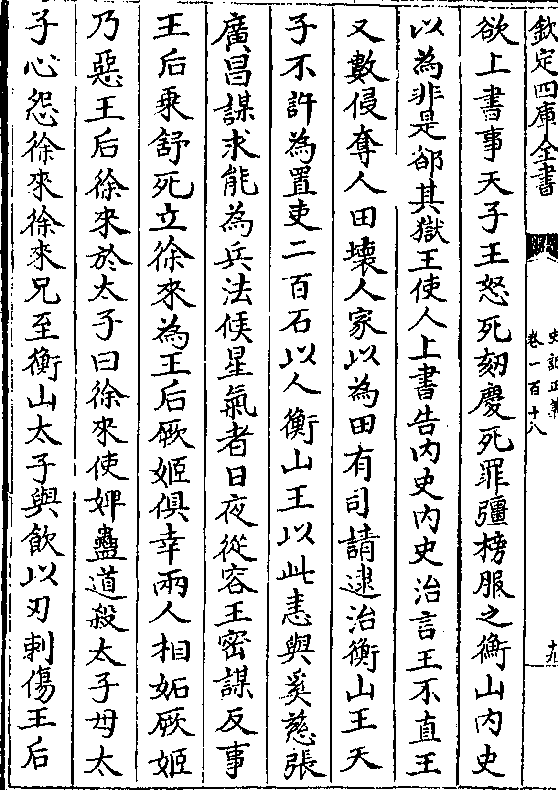 欽定四庫全書
史記正義
卷一百十八
十九
欲上書事天子王怒死劾慶死罪彊榜服之衡山内史
以為非是卻其獄王使人上書告内史内史治言王不直王
又數侵奪人田壞人冢以為田有司請逮治衡山王天
子不許為置吏二百石以人衡山王以此恚與奚慈張
廣昌謀求能為兵法候星氣者日夜從容王密謀反事
王后乘舒死立徐來為王后厥姬俱幸兩人相妬厥姬
乃惡王后徐來於太子曰徐來使婢蠱道殺太子母太
子心怨徐來徐來兄至衡山太子與飲以刃刺傷王后